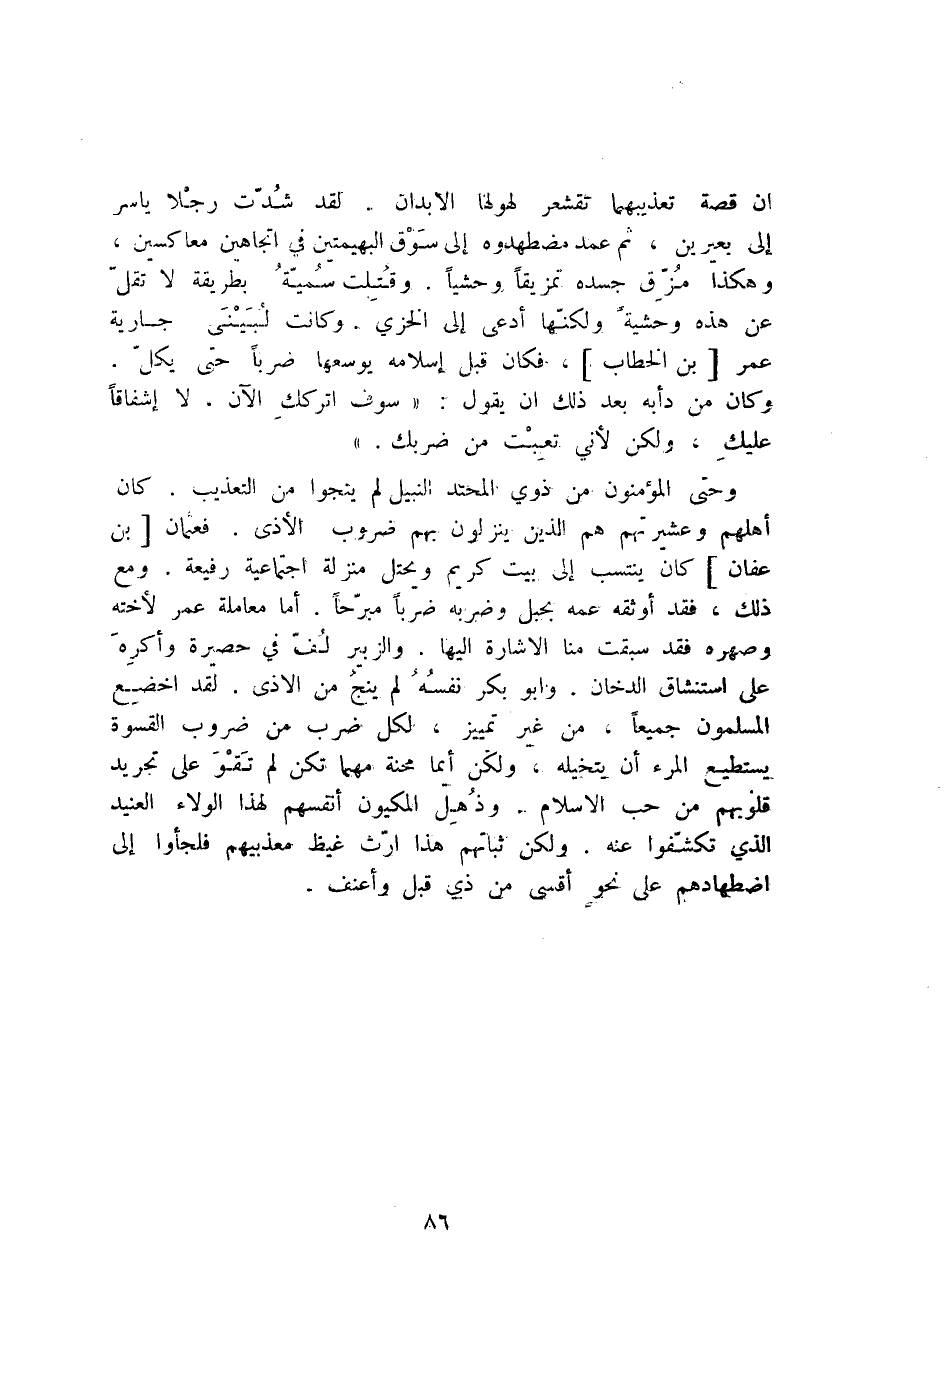 ان قصة تعذيبهما تقشعر لهولها الابدان . لقد شُدّت رجْلا ياسر
إلى بعيرين ، ثم عمد مضطهدوه إلى سَوْق البهيمتين في اتجاهين معاكسين ،
وهكذا مُزّق جسده تمزيقاً وحشياً . وقُتِلت سُميّةُ بطريقة لا تقلّ
عن هذه وحشيةً ولكنّها أدعى إلى الخزي . وكانت لُبَيْنَى جارية
عمر [ بن الخطاب ] ، فكان قبل إسلامه يوسعها ضرباً حتى يكلّ .
وكان من دأبه بعد ذلك ان يقول : « سوف اترككِ الآن . لا إشفاقاً
عليكِ ، ولكن لأني تعِبْت من ضربك . »
وحتّى المؤمنون من ذوي المحتد النبيل لم ينجوا من التعذيب . كان
أهلهم وعشيرتهم هم الذين ينزلون بهم ضروب الأذى . فعثمان [ بن
عفان ] كان ينتسب إلى بيت كريم ويحتل منزلة اجتماعية رفيعة . ومع
ذلك ، فقد أوثقه عمه بحبل وضربه ضرباً مبرّحاً . أما معاملة عمر لأخته
وصهره فقد سبقت منا الاشارة اليها . والزبير لُفّ في حصيرة وأكرِهَ
على استنشاق الدخان . وابو بكر نفسُهُ لم ينجُ من الاذى . لقد اخضِع
المسلمون جميعاً ، من غير تمييز ، لكل ضرب من ضروب القسوة
يستطيع المرء أن يتخيله ، ولكن أيما محنة مهما تكن لم تَقْوَ على تجريد
قلوبهم من حب الاسلام . وذُهِل المكيون أنفسهم لهذا الولاء العنيد
الذي تكشّفوا عنه . ولكن ثباتهم هذا ارّث غيظ معذبيهم فلجأوا إلى
اضطهادهم على نحوٍ أقسى من ذي قبل وأعنف .
٨٦